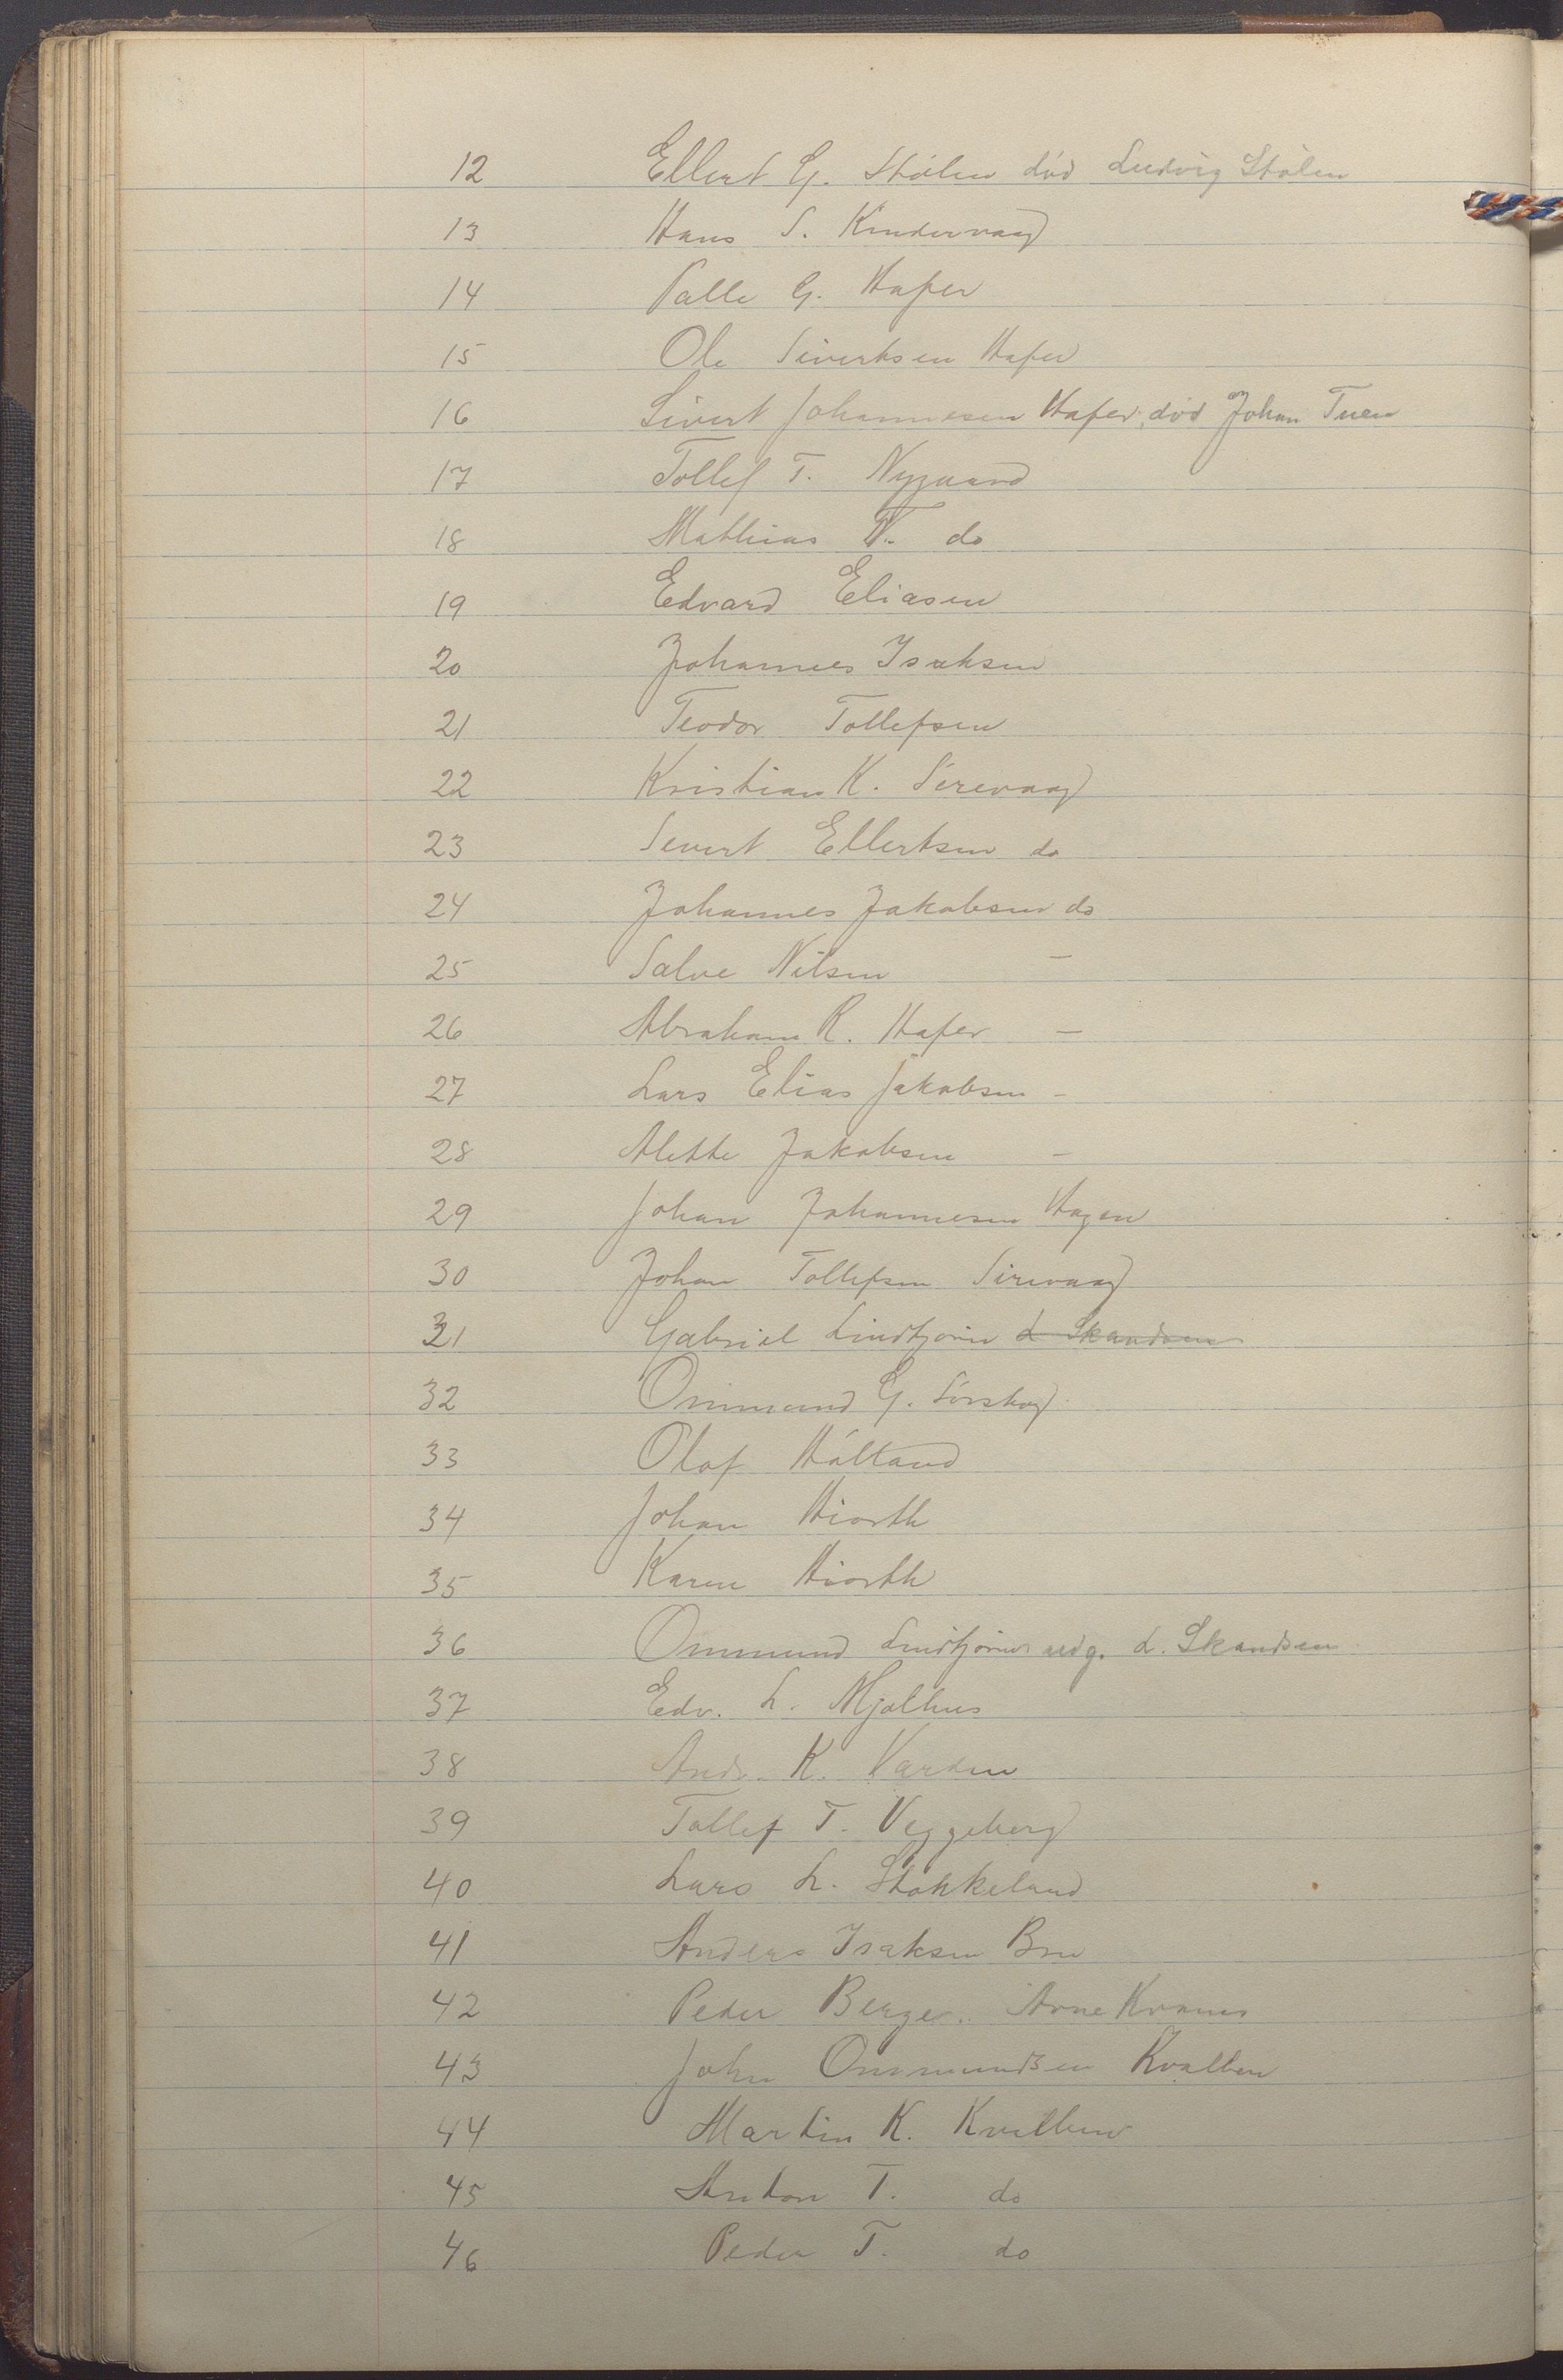 12 Ellert G. Stólen död Ludvig Stólen
13 Hans S. Kindervaag
14 Palle G. Hafer
15 Ole Sivertsen Hafer
16 Sivert Johannesen Hafer, död Johan Tuen
17 Tollef T. Nygaard
18 Mathias T. do
19 Edvard Eliasen
20 Johannes Isaksen
21 Teodor Tollefsen
22 Kristian K. Sirevaag
23 Severt Ellertsen do
24 Johannes Jakobsen do
25 Salve Nilsen —
26 Abraham R. Hafer —
27 Lars Elias Jakobsen -
28 Alette Jakobsen -
29 Johan Johannesen Hagen
30 Johan Tollefsen Sirevaag
31 Gabriel Lindtjörn L Skandsen
32 Ommund G. Sirskog
33 Olaf Hålland
34 Johan Hiorth
35 Karen Hiorth
36 Ommund Lindtjörn udg. L. Skandsen
37 Edv. L. Mjølhus
38 Andr. K. Varden
39 Tollef T. Veggeberg
40 Lars L. Stokkeland
41 Anders Isaksen Bru
42 Peder Berge. Arne Kvanes
43 John Ommundsen Kvalben
44 Martin K. Kvalben
45 Anton T. do
46 Peder T. do